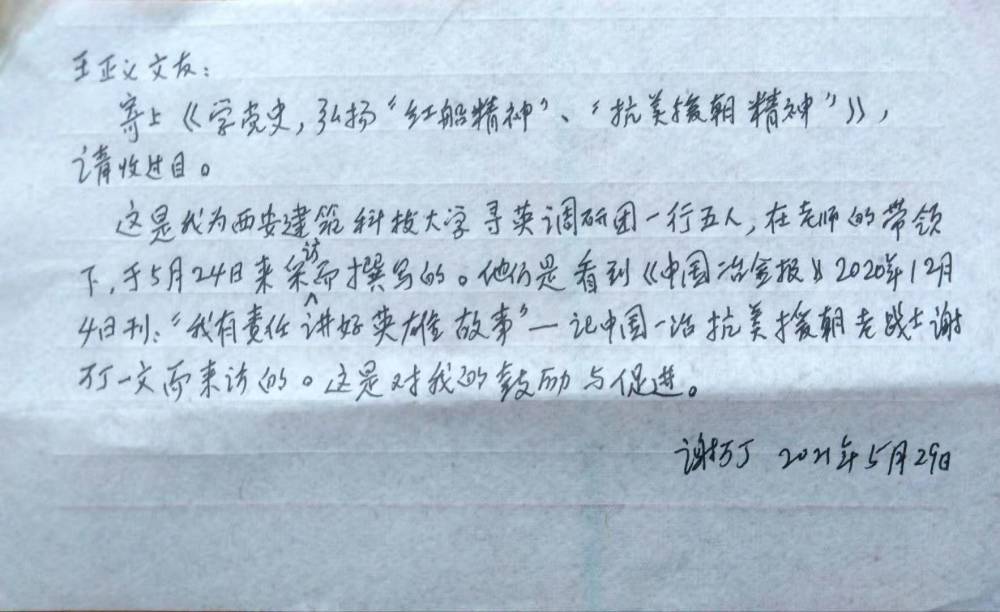 王正义文友：
寄上《学党史，弘扬“红船精神”、“抗美援朝精神”》，
请收过目。
这是我为西安建筑科技大学寻英调研团一行五人，在老师的带领
下，于5月24日来采访而撰写的。他们是看到《中国冶金报》2020年12月
4日刊：“我有责任讲好英雄故事”—记中国一冶抗美援朝老战士谢
万丁一文而来访的。这是对我的鼓励与促进。
谢万丁 2021年5月29日